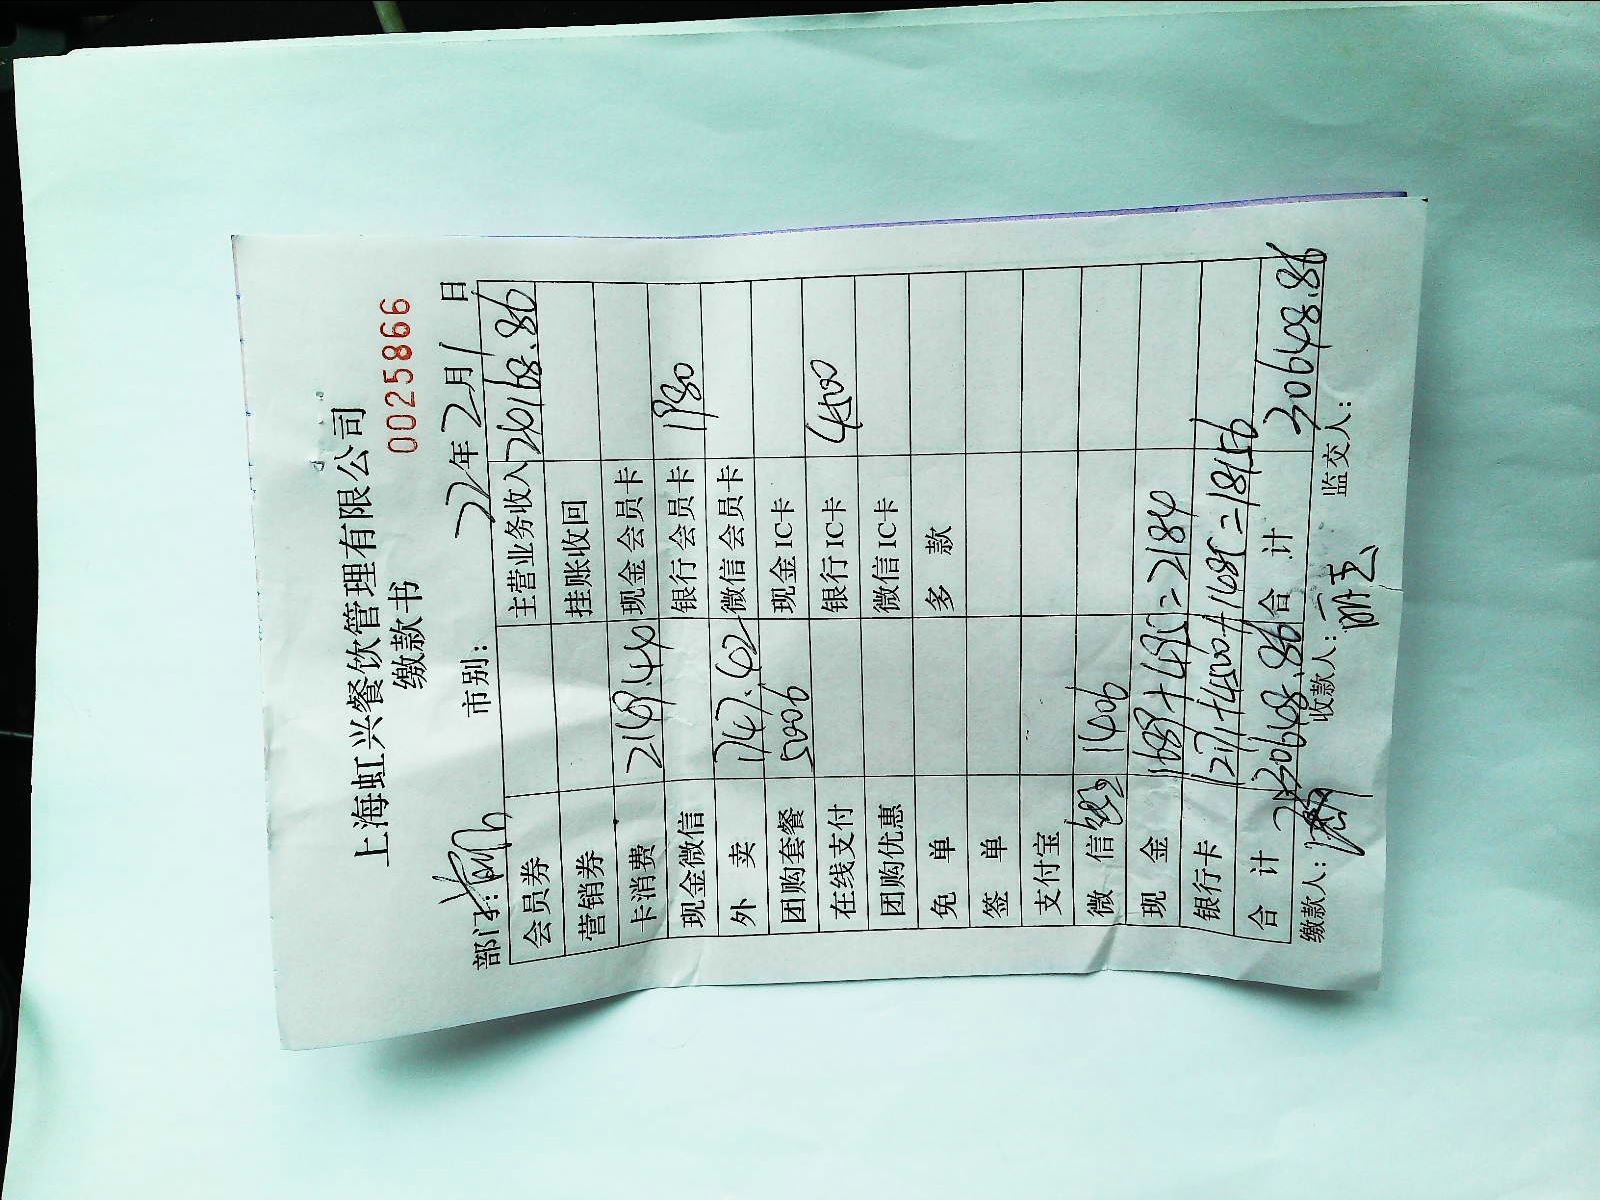 上海虹兴餐饮管理有限公司
缴款书 0025866
部门: 市别: 22年2月1日
会员券 主营业务收入 24168.86
营销券 挂账收回
卡消费 2149.44 现金会员卡
现金微信 银行会员卡 1980
外卖 1447.42 微信会员卡
团购套餐 5006 现金IC卡
在线支付 银行IC卡 4500
团购优惠 微信IC卡
免单 多款
签单
支付宝
微信 1406
现金 1689+495=2184
银行卡 12471+4500+1485=18456
合计 30648.86 合计 30648.86
缴款人: 收款人: 监交人: